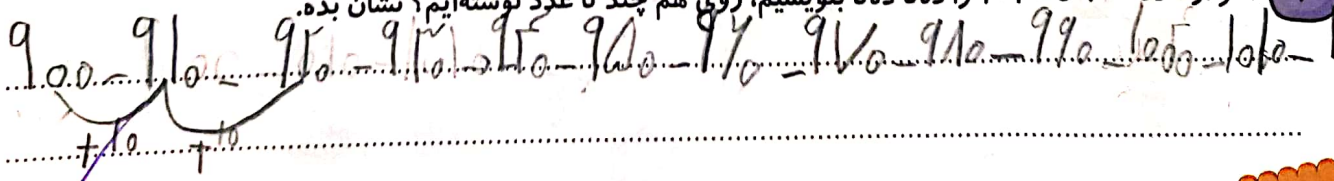 ده‌تا ده‌تا بنویسیم، روی هم چند تا عدد نوشته‌ایم؟ نشان بده.
۹۰۰ - ۹۱۰ - ۹۲۰ - ۹۳۰ - ۹۴۰ - ۹۵۰ - ۹۶۰ - ۹۷۰ - ۹۸۰ - ۹۹۰ - ۱۰۰۰ - ۱۰۱۰ -
+۱۰ +۱۰